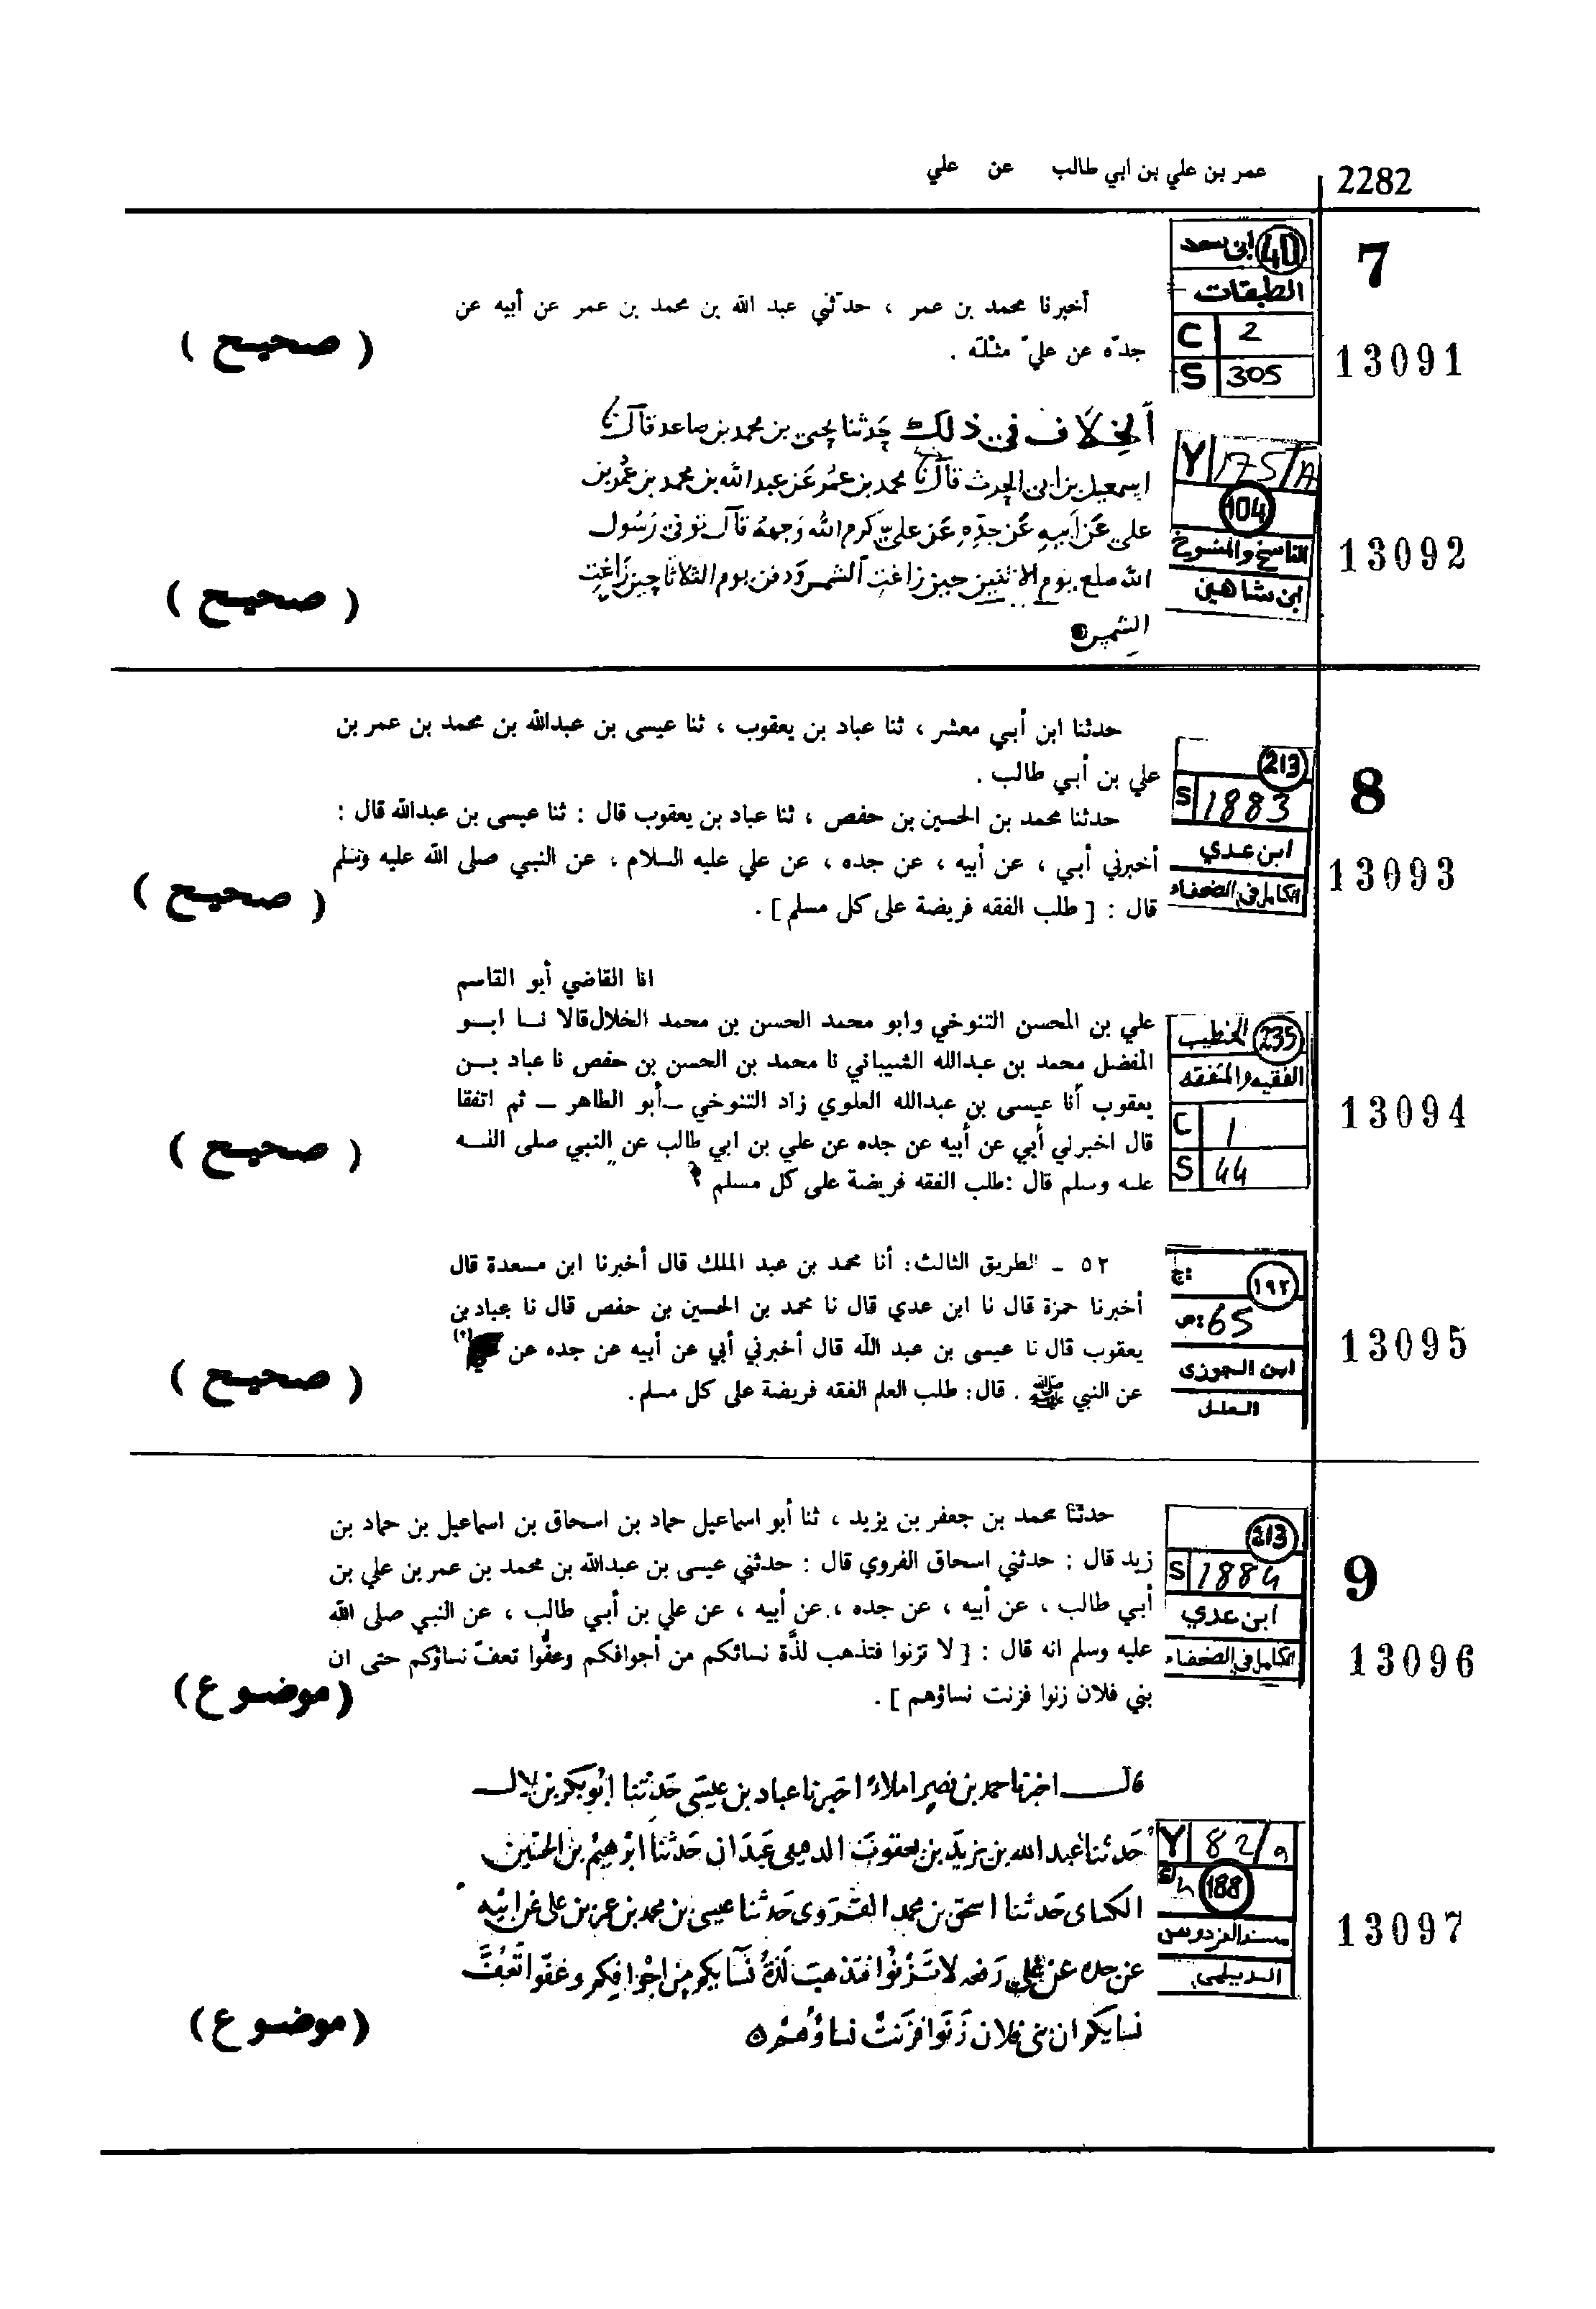 2282 عمر بن علي بن ابي طالب عن علي
7
ابن سعد 40
الطبقات
C 2
S 305
13091
أخبرنا محمد بن عمر ، حدّثني عبد الله بن محمد بن عمر عن أبيه عن
جدّه عن عليّ مثلَه .
( صحيح )
Y 175/A
104
الناسخ والمنسوخ
ابن شاهين
13092
الخلاف في ذلك حدثنا يحيى بن محمد بن صاعد قال نا
اسمعيل بن ابى الحرث قال نا محمد بن عمر عن عبد الله بن محمد بن عمر بن
على عن أبيه عن جدّه عن علىّ كرم الله وجهه قال توفى رسول
الله صلع يوم الاثنين حين زاغت الشمس ودفن يوم الثلاثا حين زاغت
الشمس
( صحيح )
8
213
S 1883
ابن عدي
الكامل في الضعفاء
13093
حدثنا ابن أبي معشر ، ثنا عباد بن يعقوب ، ثنا عيسى بن عبدالله بن محمد بن عمر بن
علي بن أبي طالب .
حدثنا محمد بن الحسين بن حفص ، ثنا عباد بن يعقوب قال : ثنا عيسى بن عبدالله قال :
أخبرني أبي ، عن أبيه ، عن جده ، عن علي عليه السلام ، عن النبي صلى الله عليه وسلم
قال : [ طلب الفقه فريضة على كل مسلم ] .
( صحيح )
الخطيب 235
الفقيه والمتفقه
C 1
S 44
13094
انا القاضي أبو القاسم
علي بن المحسن التنوخي وابو محمد الحسن بن محمد الخلال قالا نا ابو
المفضل محمد بن عبدالله الشيباني نا محمد بن الحسن بن حفص نا عباد بن
يعقوب أنا عيسى بن عبدالله العلوي زاد التنوخي ــ أبو الطاهر ــ ثم اتفقا
قال اخبرني أبي عن أبيه عن جده عن علي بن ابي طالب عن النبي صلى الله
عليه وسلم قال : طلب الفقه فريضة على كل مسلم
( صحيح )
ج: ١٩٢
ص: 65
ابن الجوزى
العلل
13095
٥٢ ـ الطريق الثالث: أنا محمد بن عبد الملك قال أخبرنا ابن مسعدة قال
أخبرنا حمزة قال نا ابن عدي قال نا محمد بن الحسين بن حفص قال نا عباد بن
يعقوب قال نا عيسى بن عبد الله قال أخبرني أبي عن أبيه عن جده عن
عن النبي ﷺ . قال: طلب العلم الفقه فريضة على كل مسلم.
( صحيح )
9
213
S 1884
ابن عدي
الكامل في الضعفاء
13096
حدثنا محمد بن جعفر بن يزيد ، ثنا أبو اسماعيل حماد بن اسحاق بن اسماعيل بن حماد بن
زيد قال : حدثني اسحاق الفروي قال : حدثني عيسى بن عبدالله بن محمد بن عمر بن علي بن
أبي طالب ، عن أبيه ، عن جده ، عن أبيه ، عن علي بن أبي طالب ، عن النبي صلى الله
عليه وسلم انه قال : [ لا تزنوا فتذهب لذّة نسائكم من أجوافكم وعفّوا تعفّ نساؤكم حتى ان
بني فلان زنوا فزنت نساؤهم ] .
(موضوع)
Y 82/9
188
مسند الفردوس
الديلمي
13097
قال اخبرنا حمد بن نصير املاءً اخبرنا عباد بن عيسَى حَدثنا ابُو بكر بن لال
حَدثنا عبد الله بن يزيد بن يعقوب حَدثنا ابرهيم بن الحسَين
الكسَاى حَدثنا اسحق بن محمد الفَروى حَدثنا عيسى بن محمد بن عمر بن على عن ابيه
عن جده عن على رَفعه لا تَزنُوا فتذهبَ لَذةُ نسَآيكم مِن اجوافِكم وعفّوا تَعفُّ
نسايكم ان بنى فلان زَنَوا فزَنتْ نساؤُهُم
(موضوع)